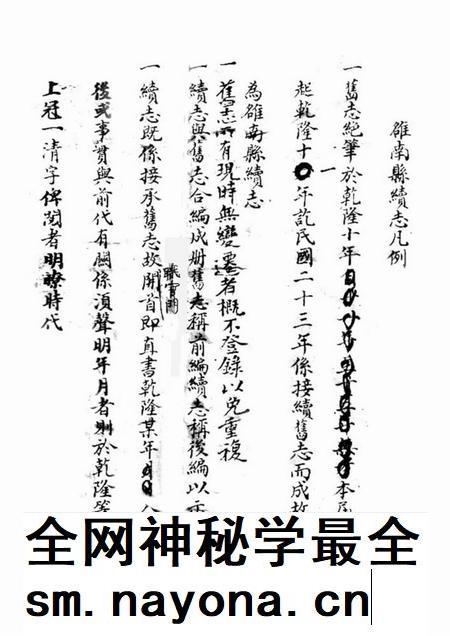 雒南縣續志凡例
一舊志絕筆於乾隆十年本
起乾隆十一年訖民國二十三年係接續舊志而成故
為雒南縣續志
一舊志所有現時無變遷者概不登錄以免重複
一續志與舊志合編成册舊志稱前編續志稱後編以
一續志既係接承舊志故開首即直書乾隆某年
後或事實與前代有關係須聲明年月者則於乾隆等
上冠一清字俾閱者明瞭時代
全网神秘学最全
sm.nayona.cn